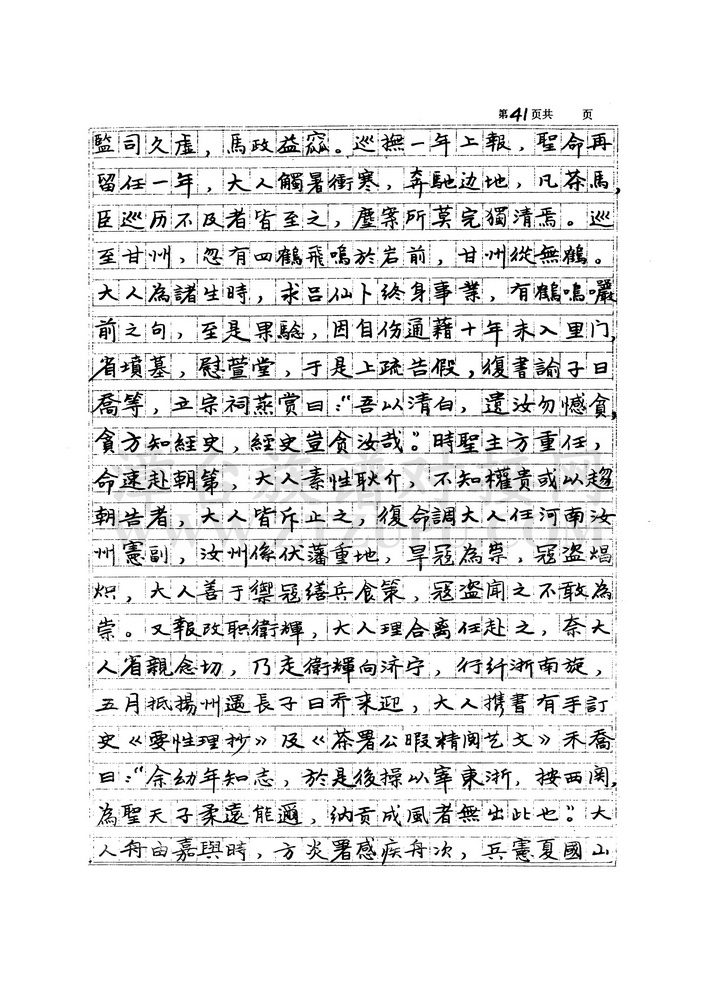 第41页共 页
監司久虛，馬政益窳。巡撫一年上報，聖命再
留任一年，大人觸暑衝寒，奔馳边地，凡茶馬，
臣巡历不及者皆至之，塵案所莫完獨清焉。巡
至甘州，忽有四鶴飛鳴於岩前，甘州從無鶴。
大人為諸生時，求吕仙卜終身事業，有鶴鳴嚴
前之句，至是果驗，因自伤通藉十年未入里门，
省墳墓，慰萱堂，于是上疏告假，復書諭子日
喬等，立宗祠燕赏曰：“吾以清白，遺汝勿憾貪，
貪方知經史，經史豈贪汝哉”。時聖主方重任，
命速赴朝第，大人素性耿介，不知權贵或以趨
朝告者，大人皆斥止之，復命調大人任河南汝
州憲副，汝州係伏藩重地，旱冦為祟，冦盗焻
炽，大人善于禦冦缮兵食策，冦盗聞之不敢為
祟。又報改职衛輝，大人理合离任赴之，奈大
人省親念切，乃走衛輝向济宁，行纤浙南旋，
五月抵揚州遇長子日乔来迎，大人携書有手訂
史《要性理抄》及《茶署公暇精阅艺文》禾喬
曰：“余幼年知志，於是後操以宰東浙，按西関，
為聖天子柔遠能邇，纳贡成風者無出此也”。大
人舟由嘉興時，方炎署感疾舟次，兵憲夏國山